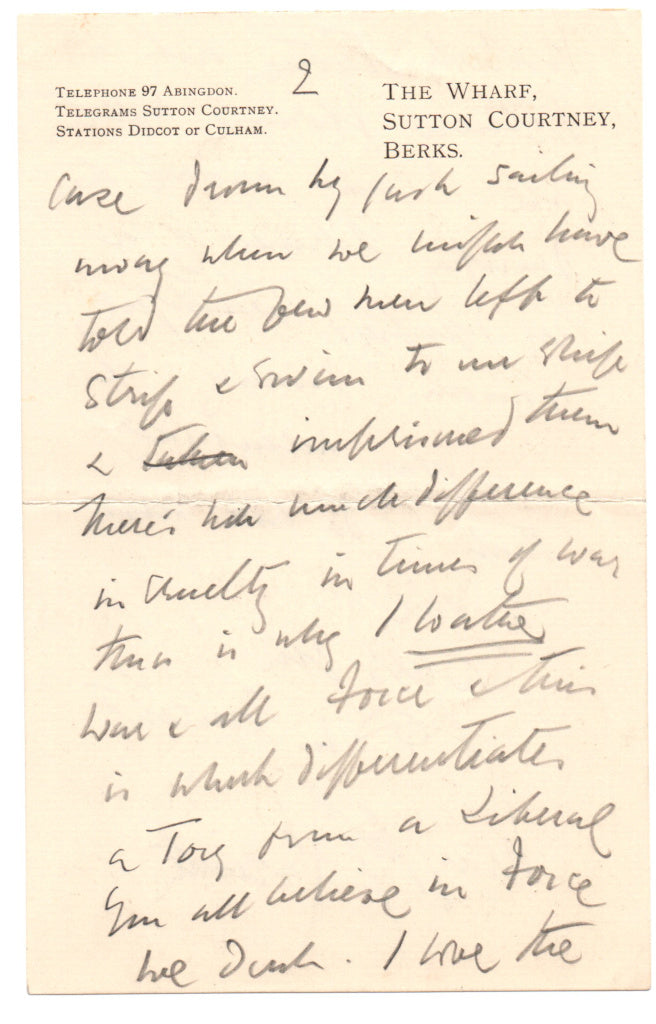 2
TELEPHONE 97 ABINGDON.
TELEGRAMS SUTTON COURTNEY.
STATIONS DIDCOT or CULHAM.
THE WHARF,
SUTTON COURTNEY,
BERKS.
case drown by just sailing
away when we might have
told the few men left to
strip & swim to our ship
& taken imprisoned them
there's not much difference
in cruelty in times of war
that is why I loathe
war & all Force & this
is what differentiates
a Tory from a Liberal
You all believe in Force
we don't. I love the